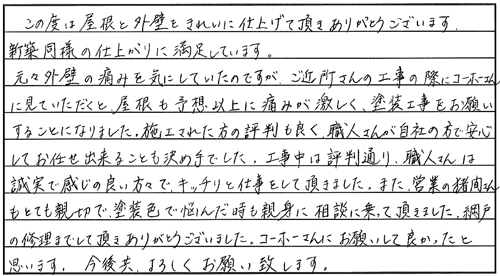 この度は屋根と外壁をきれいに仕上げて頂きありがとうございます。
新築同様の仕上がりに満足しています。
元々外壁の痛みを気にしていたのですが、ご近所さんの工事の際にコーホーさん
に見ていただくと、屋根も予想以上に痛みが激しく、塗装工事をお願い
することになりました。施工された方の評判も良く、職人さんが自社の方で安心
してお任せ出来ることも決め手でした。工事中は評判通り、職人さんは
誠実で感じの良い方々で、キッチリと仕事をして頂きました。また、営業の猪岡さん
もとても親切で、塗装色で悩んだ時も親身に相談に乗って頂きました。網戸
の修理までして頂きありがとうございました。コーホーさんにお願いして良かったと
思います。今後共、よろしくお願い致します。